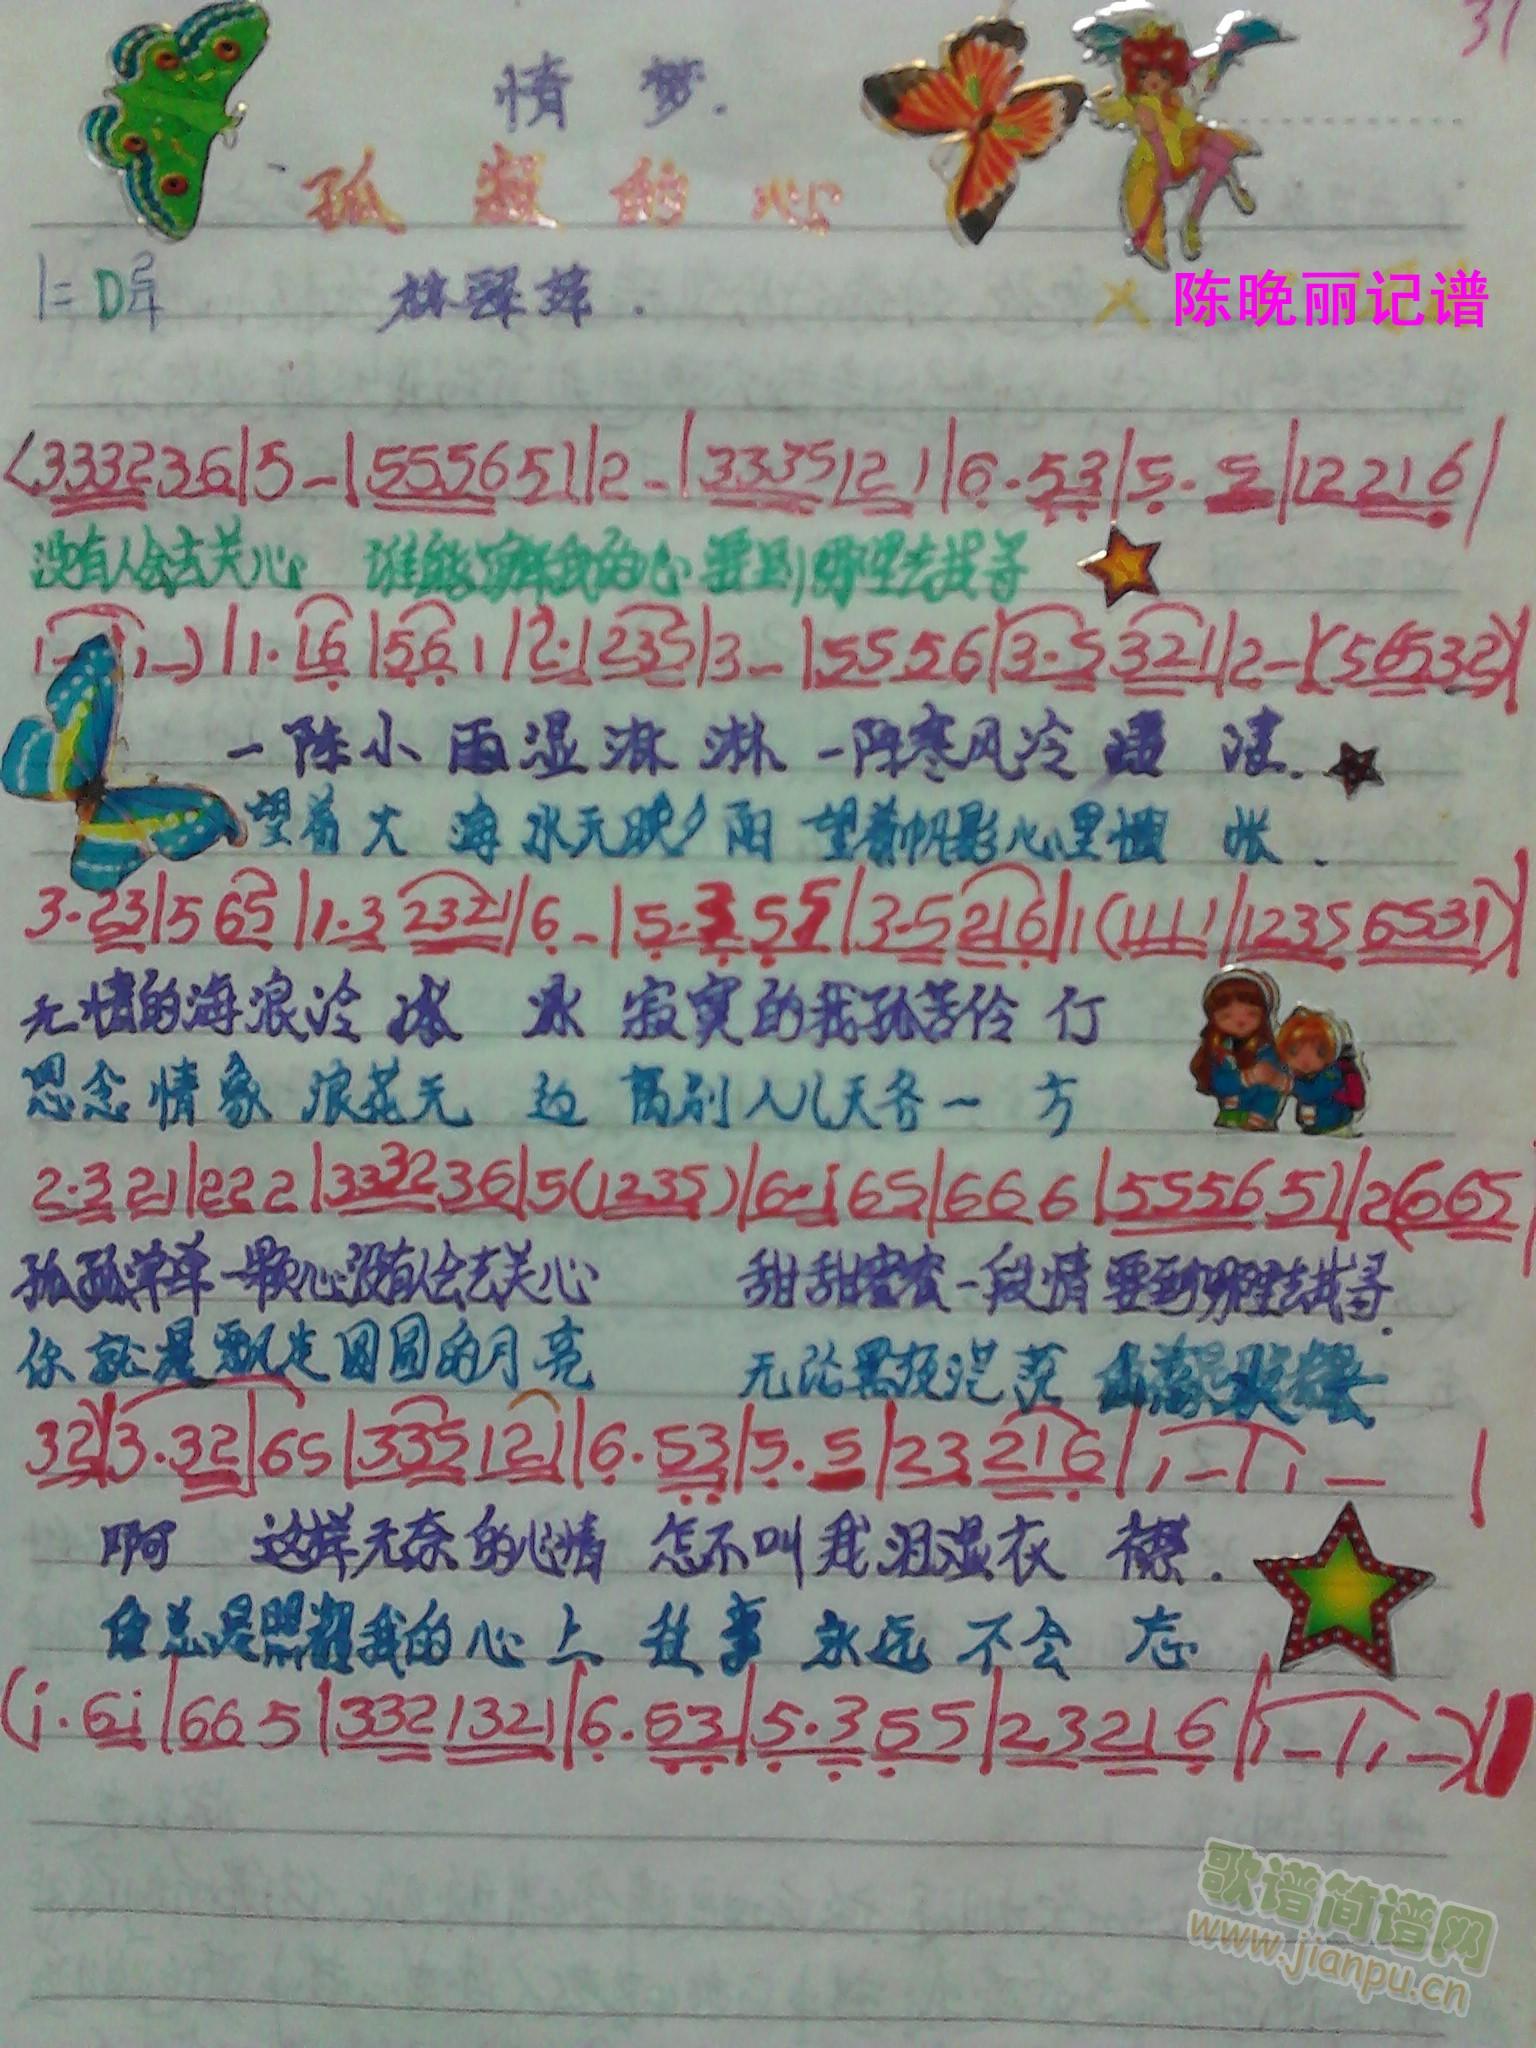 31
情 梦.
孤 凝 的 心
1=D
林翠萍.
陈晚丽记谱
(333236|5-|555651|2-|3335121|6·53|5·5|12216|
没有人会去关心 谁能了解我的心 要到哪里去找寻
1-|1-)|1·16|561|2·1235|3-|5556|3·5321|2-|(56532)|
一陈小雨湿淋淋 一陈寒风冷 凄.
望着大海水无映夕阳 望着帆影心里惆怅.
3·23|565|1·32321|6-|5·355|3·5216|1(1111|12356531)|
无情的海浪冷冰冰 寂寞的我孤苦伶仃
思念情象浪花无边 离别人儿天各一方
2·321|222|333236|5(1235)|6·i65|666|555651|2(6665
孤孤单单一颗心没有人会去关心 甜甜蜜蜜一段情要到哪里去找寻.
你就是飘走圆圆的月亮 无论黑夜茫茫
32)|3·32|65|335121|6·53|5·5|23216|1-|1-|
啊 这样无奈的心情 怎不叫我泪湿衣襟.
你总是照耀我的心上 往事永远不会忘
(i·6i|665|3321321|6·53|5·355|23216|1-|1-)|
歌谱简谱网
www.jianpu.cn